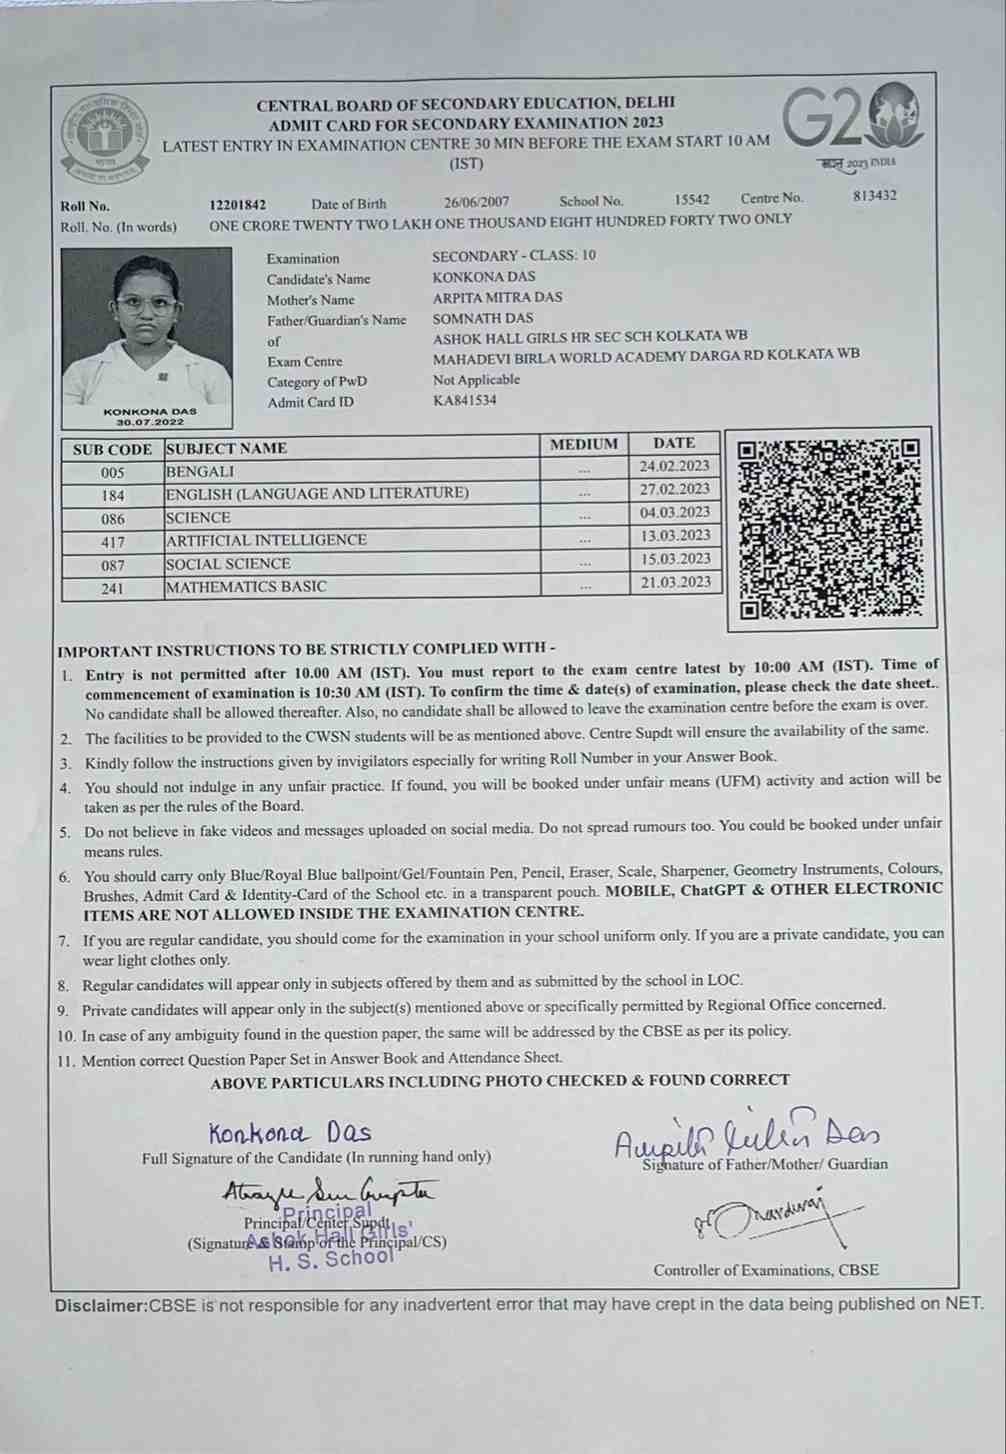 CENTRAL BOARD OF SECONDARY EDUCATION, DELHI
ADMIT CARD FOR SECONDARY EXAMINATION 2023
LATEST ENTRY IN EXAMINATION CENTRE 30 MIN BEFORE THE EXAM START 10 AM
(IST)
G20
2023 INDIA
Roll No. 12201842 Date of Birth 26/06/2007 School No. 15542 Centre No. 813432
Roll. No. (In words) ONE CRORE TWENTY TWO LAKH ONE THOUSAND EIGHT HUNDRED FORTY TWO ONLY
Examination SECONDARY - CLASS: 10
Candidate's Name KONKONA DAS
Mother's Name ARPITA MITRA DAS
Father/Guardian's Name SOMNATH DAS
of ASHOK HALL GIRLS HR SEC SCH KOLKATA WB
Exam Centre MAHADEVI BIRLA WORLD ACADEMY DARGA RD KOLKATA WB
Category of PwD Not Applicable
Admit Card ID KA841534
KONKONA DAS
30.07.2022
SUB CODE SUBJECT NAME MEDIUM DATE
005 BENGALI ... 24.02.2023
184 ENGLISH (LANGUAGE AND LITERATURE) ... 27.02.2023
086 SCIENCE ... 04.03.2023
417 ARTIFICIAL INTELLIGENCE ... 13.03.2023
087 SOCIAL SCIENCE ... 15.03.2023
241 MATHEMATICS BASIC ... 21.03.2023
IMPORTANT INSTRUCTIONS TO BE STRICTLY COMPLIED WITH -
1. Entry is not permitted after 10.00 AM (IST). You must report to the exam centre latest by 10:00 AM (IST). Time of
commencement of examination is 10:30 AM (IST). To confirm the time & date(s) of examination, please check the date sheet..
No candidate shall be allowed thereafter. Also, no candidate shall be allowed to leave the examination centre before the exam is over.
2. The facilities to be provided to the CWSN students will be as mentioned above. Centre Supdt will ensure the availability of the same.
3. Kindly follow the instructions given by invigilators especially for writing Roll Number in your Answer Book.
4. You should not indulge in any unfair practice. If found, you will be booked under unfair means (UFM) activity and action will be
taken as per the rules of the Board.
5. Do not believe in fake videos and messages uploaded on social media. Do not spread rumours too. You could be booked under unfair
means rules.
6. You should carry only Blue/Royal Blue ballpoint/Gel/Fountain Pen, Pencil, Eraser, Scale, Sharpener, Geometry Instruments, Colours,
Brushes, Admit Card & Identity-Card of the School etc. in a transparent pouch. MOBILE, ChatGPT & OTHER ELECTRONIC
ITEMS ARE NOT ALLOWED INSIDE THE EXAMINATION CENTRE.
7. If you are regular candidate, you should come for the examination in your school uniform only. If you are a private candidate, you can
wear light clothes only.
8. Regular candidates will appear only in subjects offered by them and as submitted by the school in LOC.
9. Private candidates will appear only in the subject(s) mentioned above or specifically permitted by Regional Office concerned.
10. In case of any ambiguity found in the question paper, the same will be addressed by the CBSE as per its policy.
11. Mention correct Question Paper Set in Answer Book and Attendance Sheet.
ABOVE PARTICULARS INCLUDING PHOTO CHECKED & FOUND CORRECT
Konkona Das
Full Signature of the Candidate (In running hand only)
Das
Signature of Father/Mother/ Guardian
Sen Gupta
Principal
Principal/Center Supdt
Ashok Hall Girls'
(Signature & Stamp of the Principal/CS)
H. S. School
Controller of Examinations, CBSE
Disclaimer:CBSE is not responsible for any inadvertent error that may have crept in the data being published on NET.